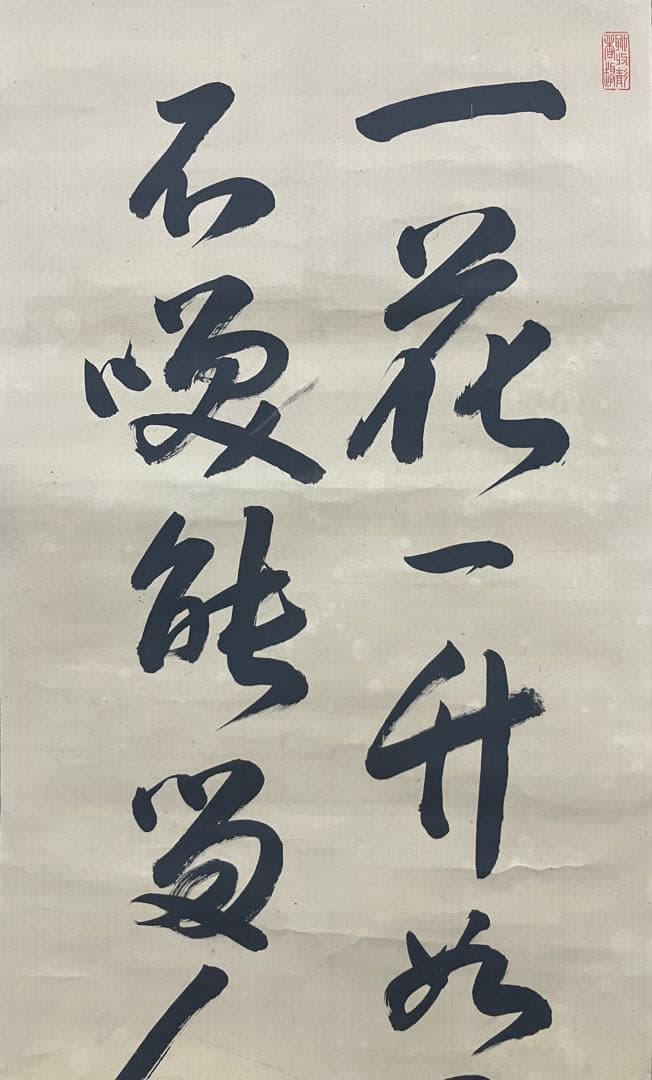 一花一竹如
不咲能留人